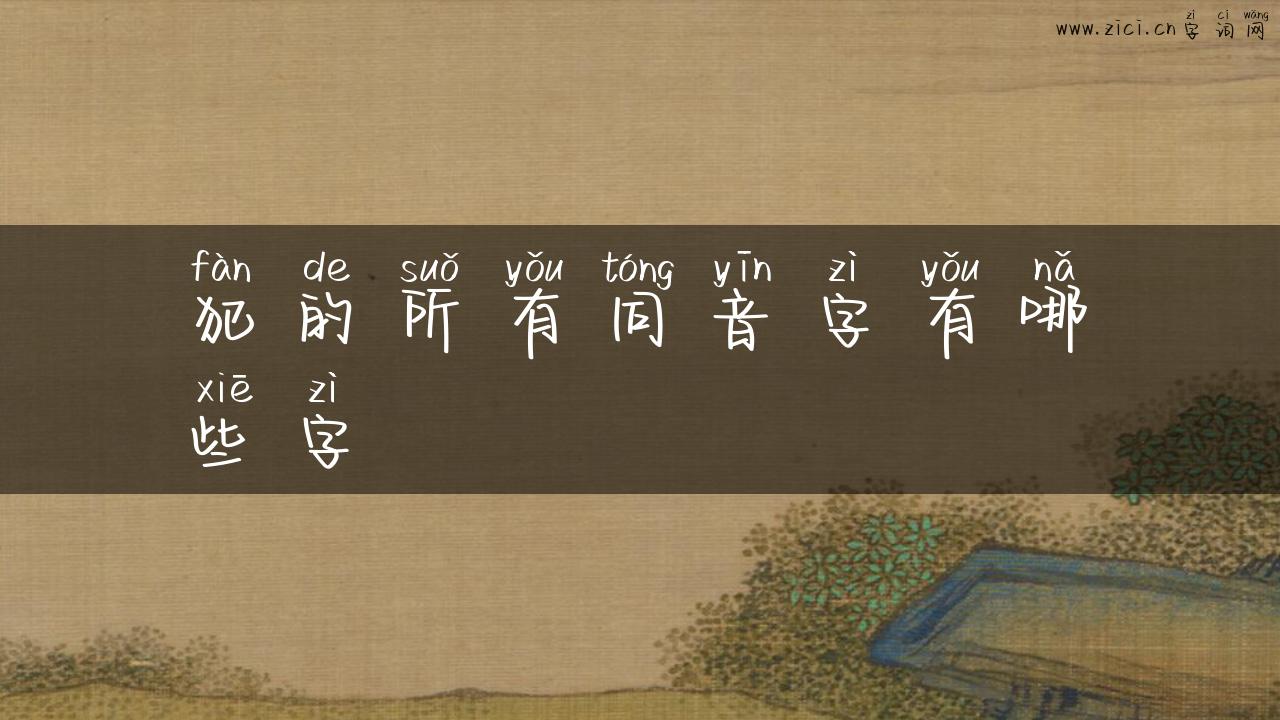 zì cí wǎng
www.zici.cn 字词网
fàn de suǒ yǒu tóng yīn zì yǒu nǎ
犯的所有同音字有哪
xiē zì
些字